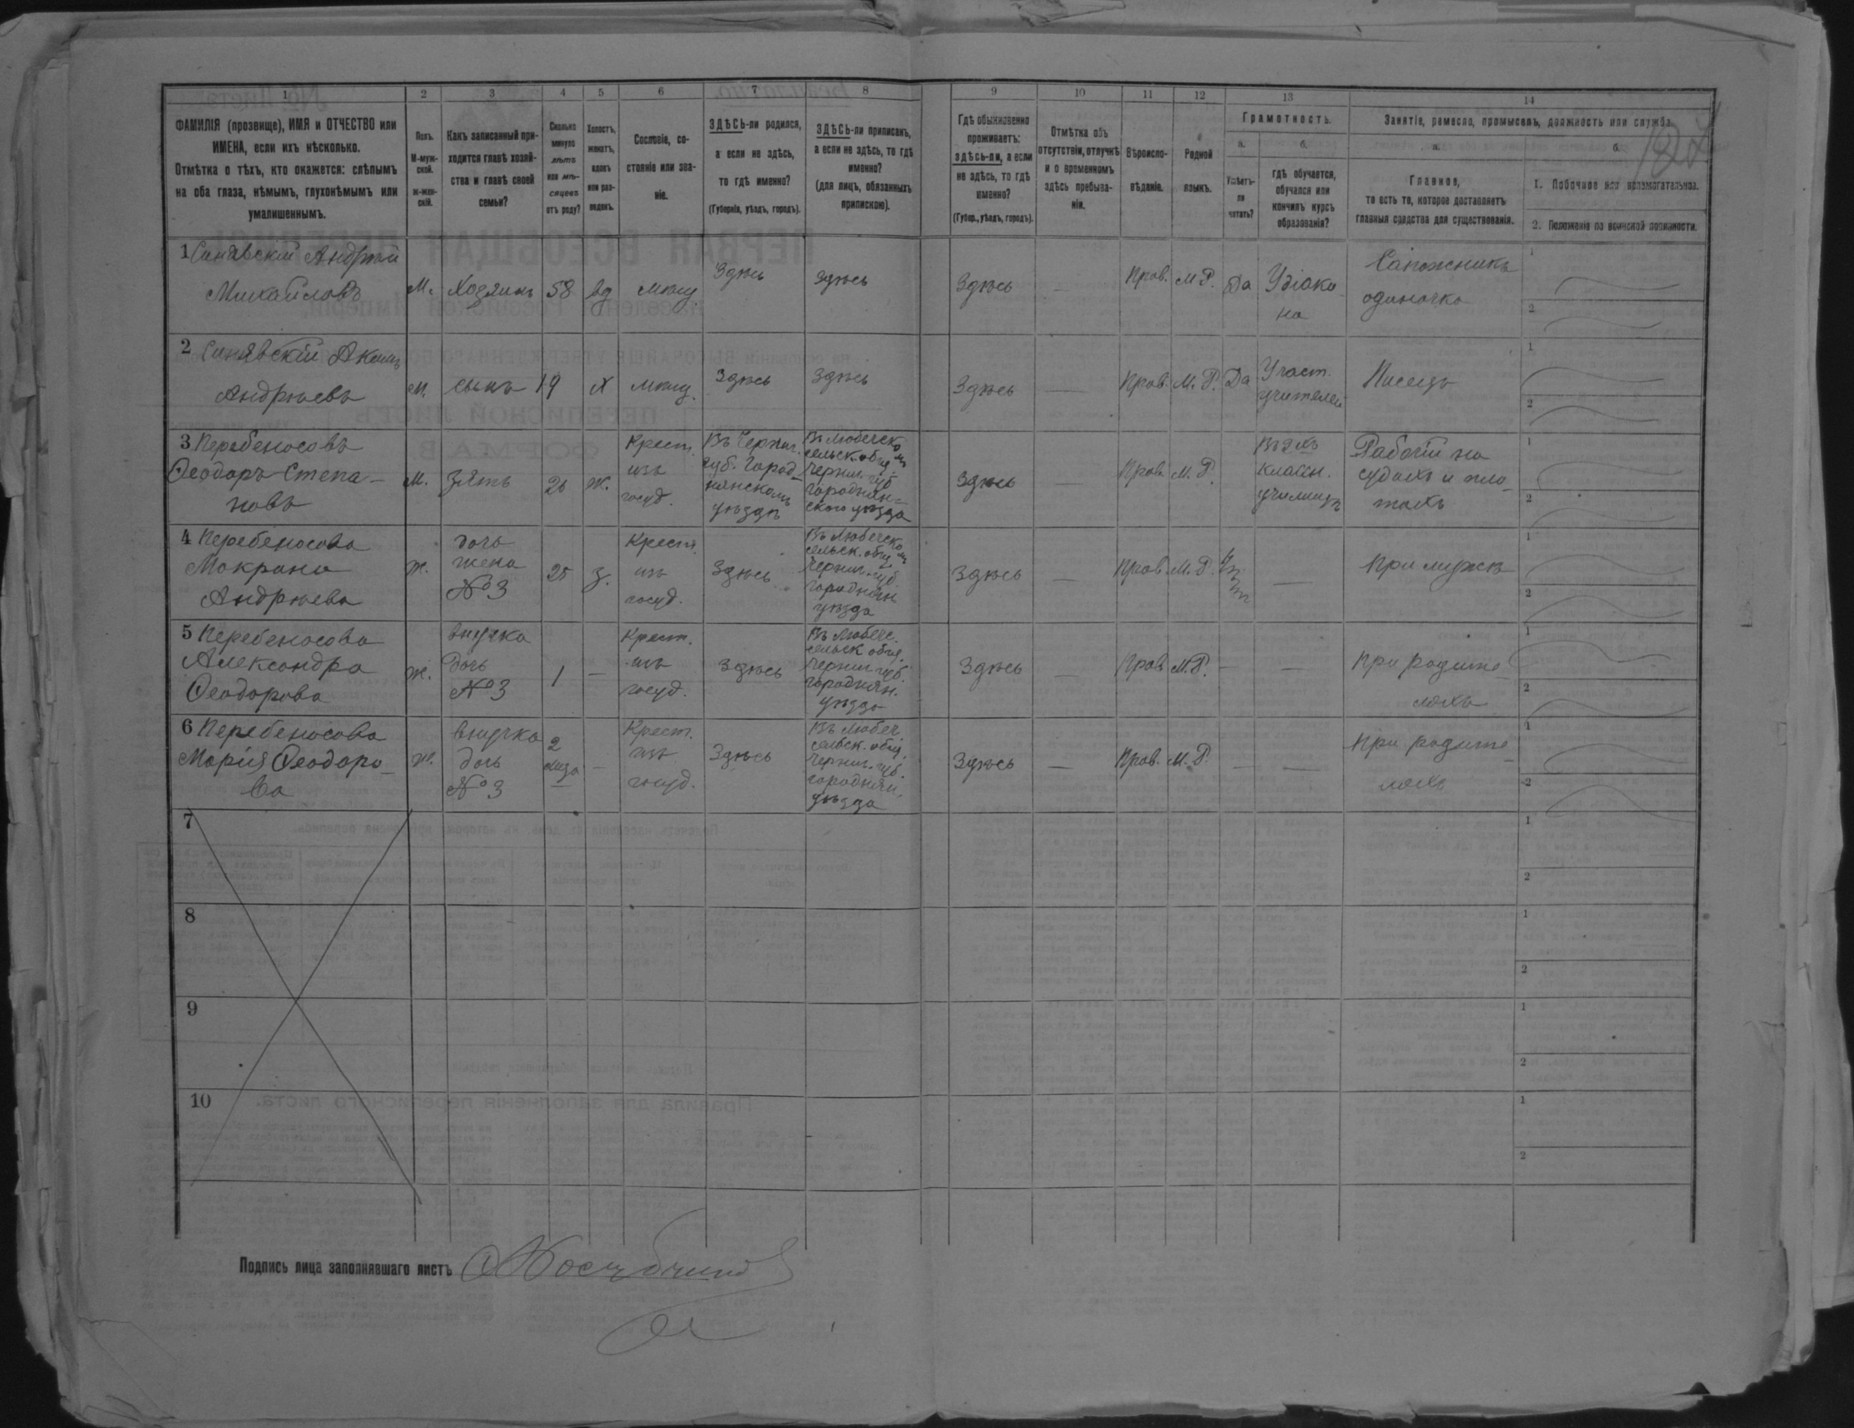 1 2 3 4 5 6 7 8 9 10 11 12 13 14
ФАМИЛІЯ (прозвище), ИМЯ и ОТЧЕСТВО или
ИМЕНА, если ихъ нѣсколько.
Отмѣтка о тѣхъ, кто окажется: слѣпымъ
на оба глаза, нѣмымъ, глухонѣмымъ или
умалишеннымъ.
Полъ.
М-муж-
ской.
Ж-жен-
скій.
Какъ записанный при-
ходится главѣ хозяй-
ства и главѣ своей
семьи?
Сколько
минуло
лѣтъ
или мѣ-
сяцевъ
отъ роду?
Холостъ,
женатъ,
вдовъ
или раз-
веденъ.
Сословіе, со-
стояніе или зва-
ніе.
ЗДѢСЬ-ли родился,
а если не здѣсь,
то гдѣ именно?
(Губернія, уѣздъ, городъ).
ЗДѢСЬ-ли приписанъ,
а если не здѣсь, то гдѣ
именно?
(для лицъ, обязанныхъ
припискою).
Гдѣ обыкновенно
проживаетъ:
здѣсь-ли, а если
не здѣсь, то гдѣ
именно?
(Губер., уѣздъ, городъ).
Отмѣтка объ
отсутствіи, отлучкѣ
и о временномъ
здѣсь пребыва-
ніи.
Вѣроиспо-
вѣданіе.
Родной
языкъ.
Грамотность.
а.
Умѣетъ-
ли
читать?
б.
гдѣ обучается,
обучался или
кончилъ курсъ
образованія?
Занятіе, ремесло, промыселъ, должность или служба.
а.
Главное,
то есть то, которое доставляетъ
главныя средства для существованія.
б.
1. Побочное или вспомогательное.
2. Положеніе по воинской повинности.
1 Синявскій Андрей
Михайловъ
М. Хозяинъ 58 вд мѣщ. Здѣсь здѣсь Здѣсь — Прав. М.Р. Да
У діако
на
Сапожникъ
одиночка
1
2
2 Синявскій Акимъ
Андреевъ
М. сынъ 19 х мѣщ. Здѣсь здѣсь Здѣсь — Прав. М.Р. Да
У част.
учителей
Писецъ
1
2
3 Перебеносовъ
Ѳеодоръ Степа-
новъ
М. зять ж.
Крест.
изъ
госуд.
Въ Черниг.
губ. Город-
нянскомъ
уѣздѣ
Въ Любечском
сельск. общ.
Черниг. губ.
Городнян-
скаго уѣзда
Здѣсь — Прав. М.Р.
классн.
училищѣ
Рабочій на
судахъ и пло-
тахъ
1
2
4 Перебеносова
Макрина
Андреева
Ж.
дочь
жена
№3
25 з.
Крест.
изъ
госуд.
Здѣсь
Въ Любечском
сельск. общ.
Черниг. губ.
Городнян.
уѣзда
Здѣсь — Прав. М.Р. Нѣтъ —
При мужѣ
1
2
5 Перебеносова
Александра
Ѳеодорова
ж.
внучка
дочь
№3
1 —
Крест.
изъ
госуд.
здѣсь
Въ Любечс.
сельск общ.
Черниг. губ.
Городнян.
уѣзда
Здѣсь — Прав. М.Р. — —
При родите
ляхъ
1
2
6 Перебеносова
Марія Ѳеодоро-
ва
Ж.
внучка
дочь
№3
2
мѣсяца
—
Крест.
изъ
госуд.
Здѣсь
Въ Любеч
сельск. общ.
Черниг. губ.
Городнян.
уѣзда
Здѣсь — Прав. М.Р. — —
При родите
ляхъ
1
2
7
1
2
8
1
2
9
1
2
10
1
2
Подпись лица заполнявшаго листъ